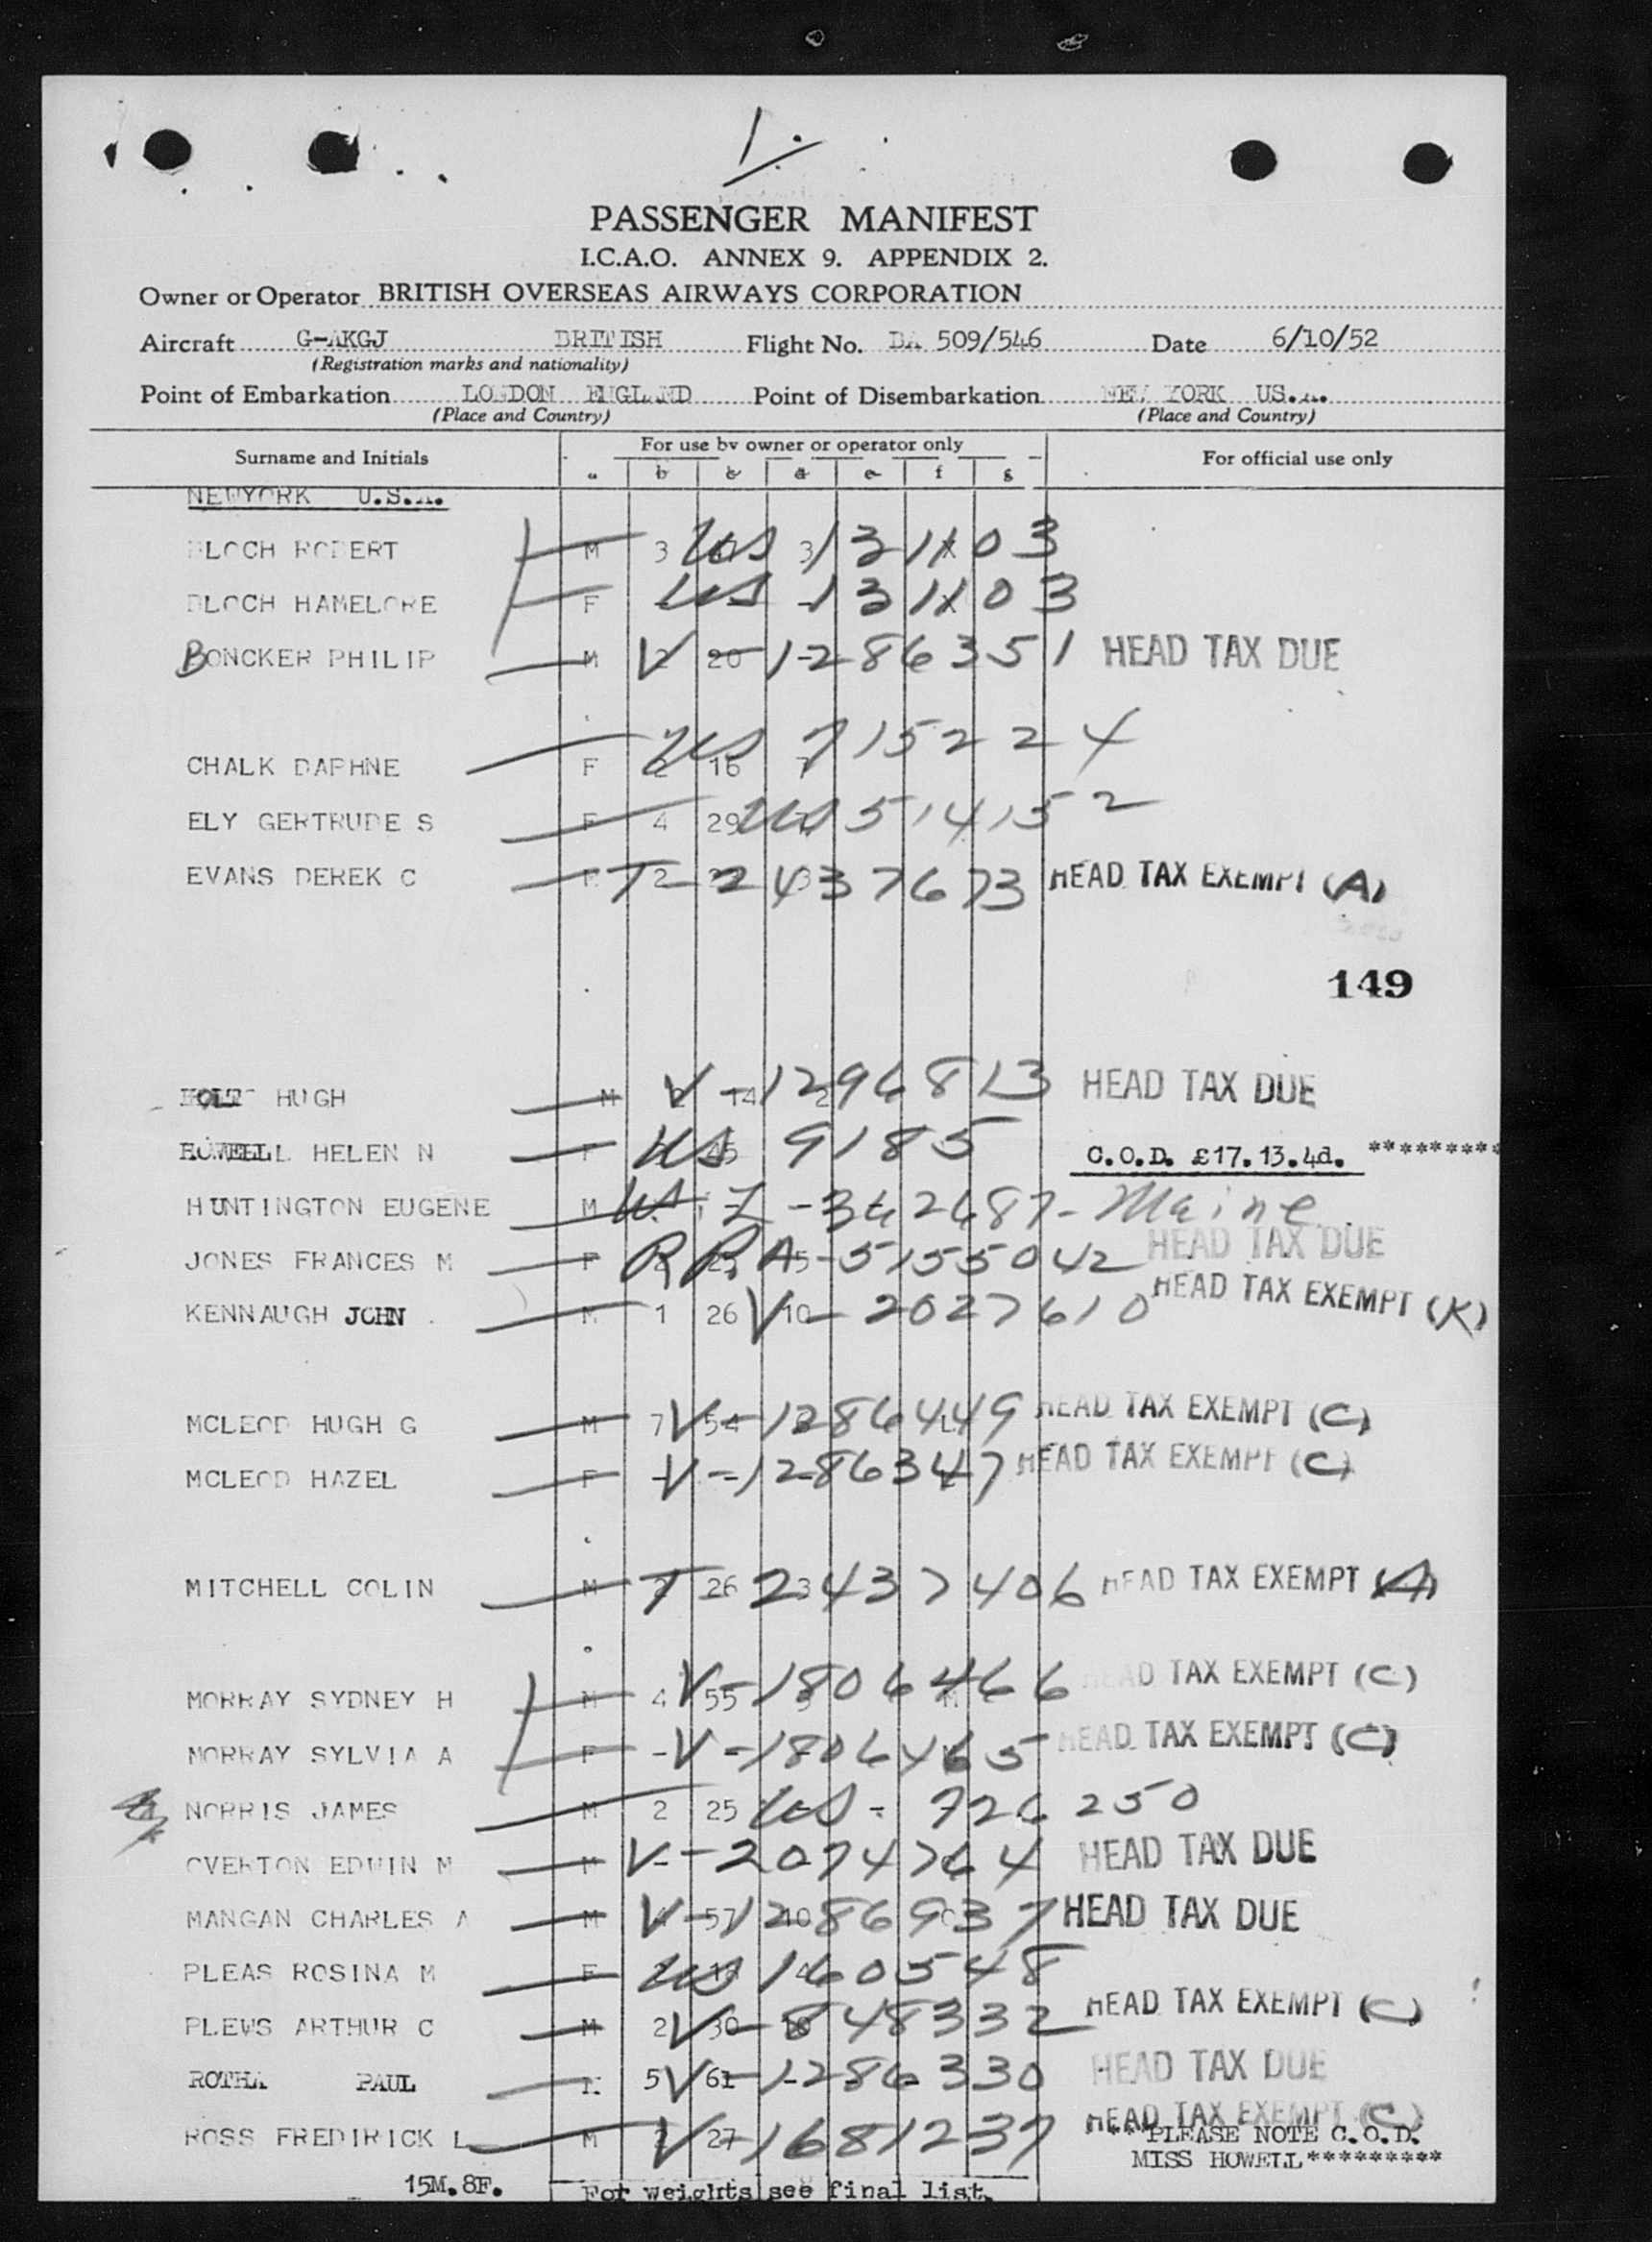 1.
PASSENGER MANIFEST
I.C.A.O. ANNEX 9. APPENDIX 2.
Owner or Operator BRITISH OVERSEAS AIRWAYS CORPORATION
Aircraft G-AKGJ BRITISH Flight No. BA 509/546 Date 6/10/52
(Registration marks and nationality)
Point of Embarkation LONDON ENGLAND Point of Disembarkation NEW YORK US.A.
(Place and Country) (Place and Country)
Surname and Initials For use by owner or operator only For official use only
a b c d e f g
NEWYORK U.S.A.
BLOCH ROBERT M 3 US 131103
BLOCH HAMELORE F US 131103
BONCKER PHILIP M 2 20 V-1286351 HEAD TAX DUE
CHALK DAPHNE F 2 16 7 US 715224
ELY GERTRUDE S F 4 29 US 514152
EVANS DEREK C 2 T-2437673 HEAD TAX EXEMPT (A)
149
HOLT HUGH M 2 14 2 V-1296813 HEAD TAX DUE
HOWELL HELEN N F 45 US 9185 C.O.D. £17.13.4d. *********
HUNTINGTON EUGENE M US Z-342687- Maine
JONES FRANCES M F R.P.A-5155042 HEAD TAX DUE
KENNAUGH JOHN M 1 26 10 V-2027610 HEAD TAX EXEMPT (K)
MCLEOD HUGH G M 7 54 V-1286449 HEAD TAX EXEMPT (C)
MCLEOD HAZEL F - - V-1286347 HEAD TAX EXEMPT (C)
MITCHELL COLIN M 26 3 T-2437406 HEAD TAX EXEMPT (A)
MORRAY SYDNEY H M 4 55 V-1806466 HEAD TAX EXEMPT (C)
MORRAY SYLVIA A F - V-1806465 HEAD TAX EXEMPT (C)
NORRIS JAMES M 2 25 US - 726250
OVERTON EDWIN M M - V-2074764 HEAD TAX DUE
MANGAN CHARLES A M 57 10 V-1286937 HEAD TAX DUE
PLEAS ROSINA M F US 160548
PLEWS ARTHUR C M 2 30 V-848332 HEAD TAX EXEMPT (C)
ROTHA PAUL M 5 61 V-1286330 HEAD TAX DUE
ROSS FREDIRICK L M 2 27 V-1681237 HEAD TAX EXEMPT (C)
**PLEASE NOTE C.O.D.
MISS HOWELL*********
15M.8F. For weights see final list.